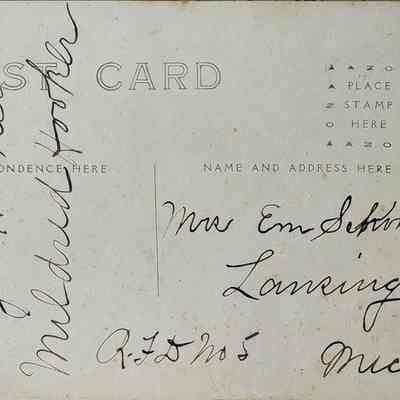 ST CARD
AZO
A PLACE
Z STAMP
O HERE
AZO
NDENCE HERE
NAME AND ADDRESS HERE
Mildred Hooker
Mrs Em
Lansing
R.F.D No 5
Mic